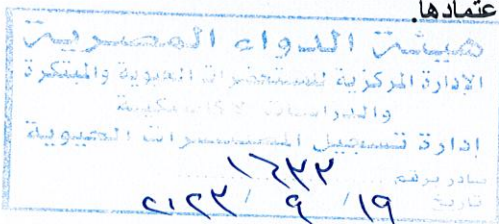 عتمادها.
هيئة الدواء المصرية
الإدارة المركزية للمستحضرات الحيوية والمبتكرة
والدراسات الإكلينيكية
إدارة تسجيل المستحضرات الحيوية
صادر برقم ١٦٣٣
تاريخ ١٩ / ٩ / ٢٠٢٣